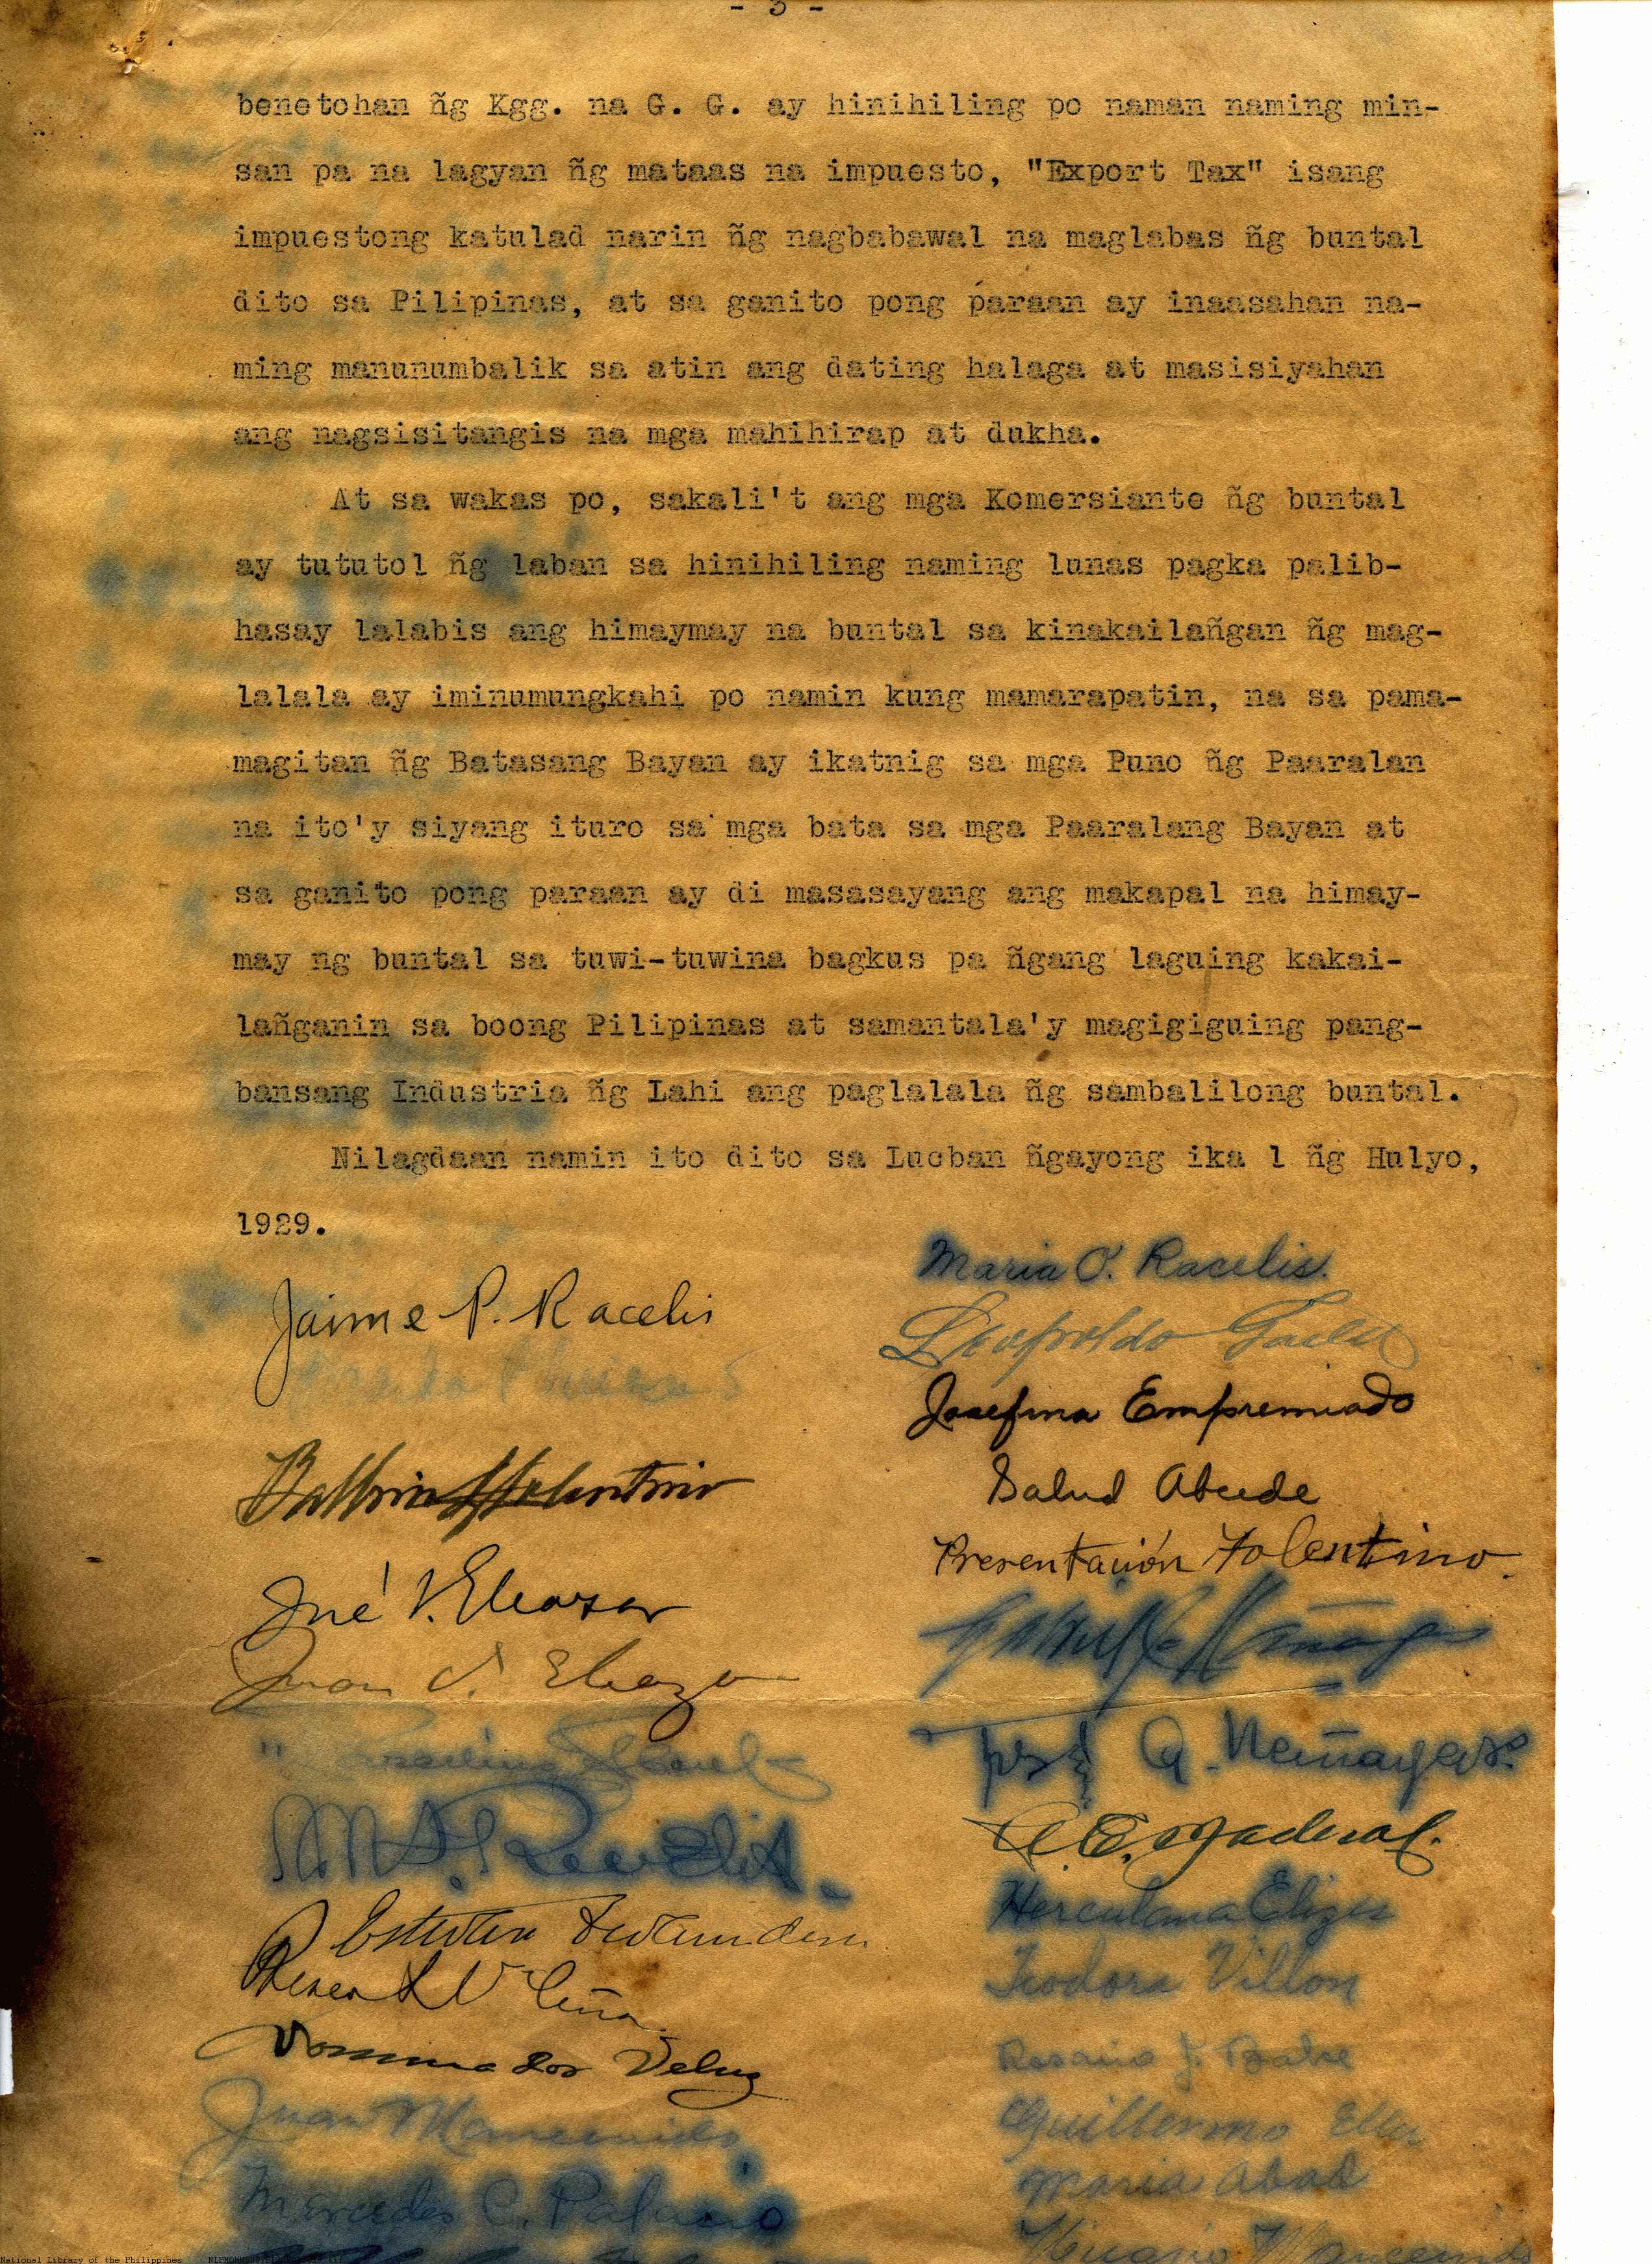 - 3 -
benetohan ñg Kgg. na G. G. ay hinihiling po naman naming min-
san pa na lagyan ñg mataas na impuesto, "Export Tax" isang
impuestong katulad narin ñg nagbabawal na maglabas ñg buntal
dito sa Pilipinas, at sa ganito pong paraan ay inaasahan na-
ming manunumbalik sa atin ang dating halaga at masisiyahan
ang nagsisitangis na mga mahihirap at dukha.
At sa wakas po, sakali't ang mga Komersiante ñg buntal
ay tututol ñg laban sa hinihiling naming lunas pagka palib-
hasay lalabis ang himaymay na buntal sa kinakailañgan ñg mag-
lalala ay iminumungkahi po namin kung mamarapatin, na sa pama-
magitan ñg Batasang Bayan ay ikatnig sa mga Puno ñg Paaralan
na ito'y siyang ituro sa mga bata sa mga Paaralang Bayan at
sa ganito pong paraan ay di masasayang ang makapal na himay-
may ng buntal sa tuwi-tuwina bagkus pa ñgang laguing kakai-
lañganin sa boong Pilipinas at samantala'y magigiguing pang-
bansang Industria ñg Lahi ang paglalala ñg sambalilong buntal.
Nilagdaan namin ito dito sa Lucban ñgayong ika 1 ñg Hulyo,
1929.
Jaime P. Racelis
José V. Eleazar
Juan V. Eleazar
Racelis
Esteban
Dominador Veluz
Juan Mancenido
Mercedes C. Palacio
Maria O. Racelis.
Leopoldo
Josefina Empremiado
Salud Abcede
Presentación Tolentino.
A. Nañagas
A. E. Maderal.
Herculana Eligen
Teodora Villon
Rosario J. Babe
Guillermo Ella
Maria Abad
National Library of the Philippines